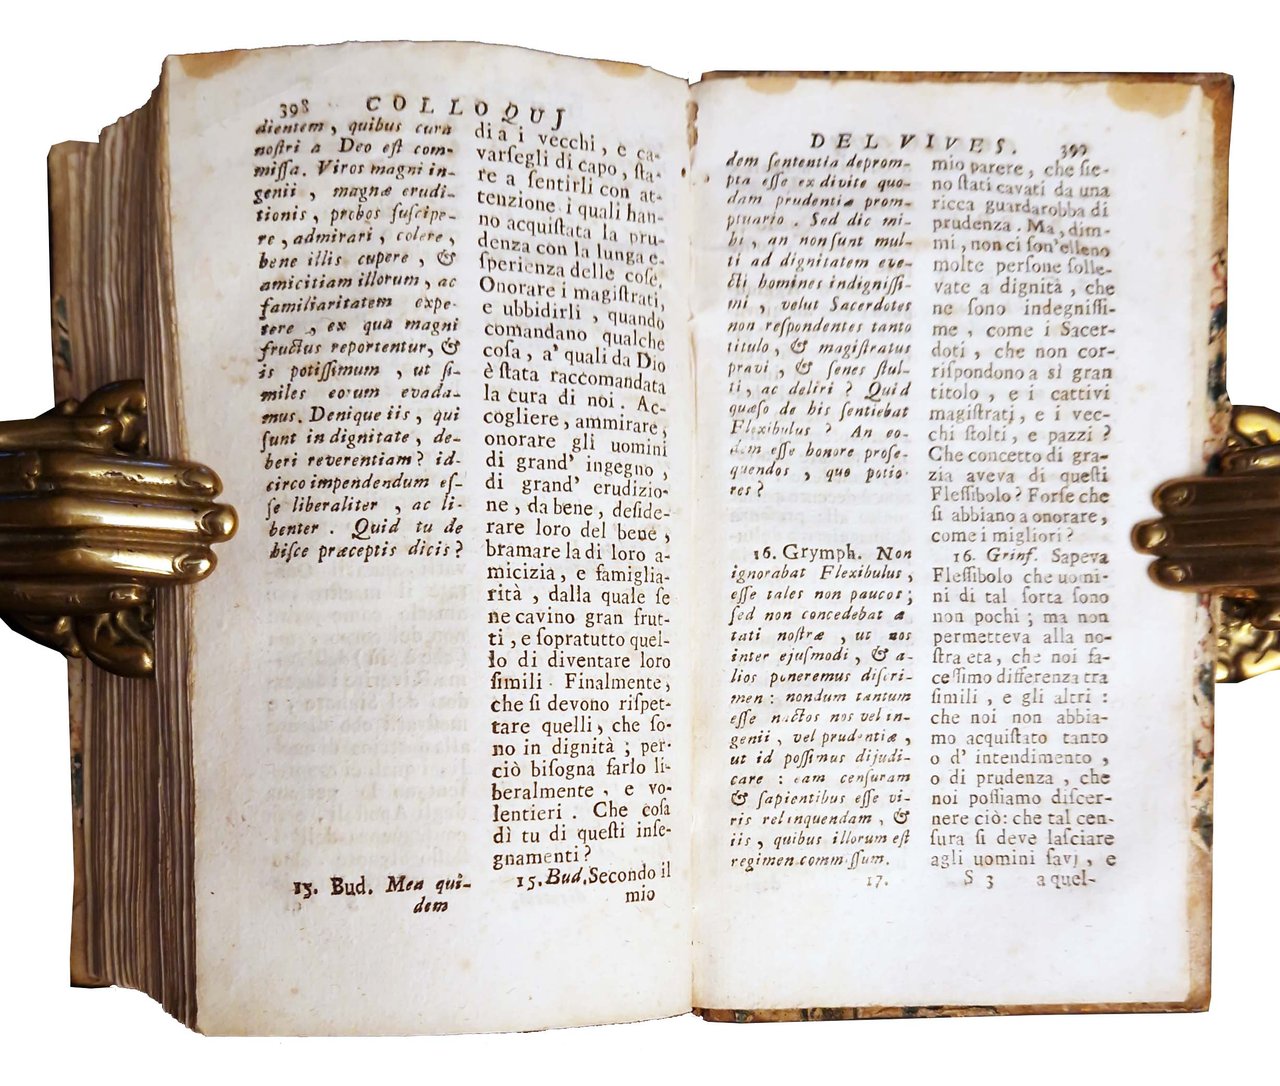 398 COLLOQUJ
dientem, quibus cura
noſtri a Deo eſt com-
miſſa. Viros magni in-
genii, magnæ erudi-
tionis, probos ſuſcipe-
re, admirari, colere,
bene illis cupere, &
amicitiam illorum, ac
familiaritatem expe-
tere, ex qua magni
fructus reportentur, &
is potiſſimum, ut ſi-
miles eorum evada-
mus. Denique iis, qui
ſunt in dignitate, de-
beri reverentiam? id-
circo impendendum eſ-
ſe liberaliter, ac li-
benter. Quid tu de
hiſce præceptis dicis?
15. Bud. Mea qui-
dem
dia i vecchi, e ca-
varſegli di capo, ſta-
re a ſentirli con at-
tenzione i quali han-
no acquiſtata la pru-
denza con la lunga e-
ſperienza delle coſe.
Onorare i magiſtrati,
e ubbidirli, quando
comandano qualche
coſa, a' quali da Dio
è ſtata raccomandata
la cura di noi. Ac-
cogliere, ammirare,
onorare gli uomini
di grand' ingegno,
di grand' erudizio-
ne, da bene, deſide-
rare loro del bene,
bramare la di loro a-
micizia, e famiglia-
rità, dalla quale ſe
ne cavino gran frut-
ti, e ſopratutto quel-
lo di diventare loro
ſimili. Finalmente,
che ſi devono riſpet-
tare quelli, che ſo-
no in dignità; per-
ciò biſogna farlo li-
beralmente, e vo-
lentieri. Che coſa
dì tu di queſti inſe-
gnamenti?
15. Bud. Secondo il
mio
DEL VIVES. 399
dem ſententia deprom-
pta eſſe ex divite quo-
dam prudentiæ prom-
ptuario. Sed dic mi-
hi, an non ſunt mul-
ti ad dignitatem eve-
cti homines indigniſſi-
mi, velut Sacerdotes
non reſpondentes tanto
titulo, & magiſtratus
pravi, & ſenes ſtul-
ti, ac deliri? Quid
quæſo de his ſentiebat
Flexibulus? An eo-
dem eſſe honore proſe-
quendos, quo potio-
res?
16. Grymph. Non
ignorabat Flexibulus,
eſſe tales non paucos;
ſed non concedebat æ
tati noſtræ, ut nos
inter ejuſmodi, & a-
lios poneremus diſcri-
men: nondum tantum
eſſe nactos nos vel in-
genii, vel prudentiæ,
ut id poſſimus dijudi-
care: eam cenſuram
& ſapientibus eſſe vi-
ris relinquendam, &
iis, quibus illorum eſt
regimen commiſſum.
17.
mio parere, che ſie-
no ſtati cavati da una
ricca guardarobba di
prudenza. Ma, dim-
mi, non ci ſon'elleno
molte perſone ſolle-
vate a dignità, che
ne ſono indegniſſi-
me, come i Sacer-
doti, che non cor-
riſpondono a sì gran
titolo, e i cattivi
magiſtratj, e i vec-
chi ſtolti, e pazzi?
Che concetto di gra-
zia aveva di queſti
Fleſſibolo? Forſe che
ſi abbiano a onorare,
come i migliori?
16. Grinf. Sapeva
Fleſſibolo che uomi-
ni di tal ſorta ſono
non pochi; ma non
permetteva alla no-
ſtra eta, che noi fa-
ceſſimo differenza tra
ſimili, e gli altri:
che noi non abbia-
mo acquiſtato tanto
o d' intendimento,
o di prudenza, che
noi poſſiamo diſcer-
nere ciò: che tal cen-
ſura ſi deve laſciare
agli uomini ſavj, e
S 3 a quel-